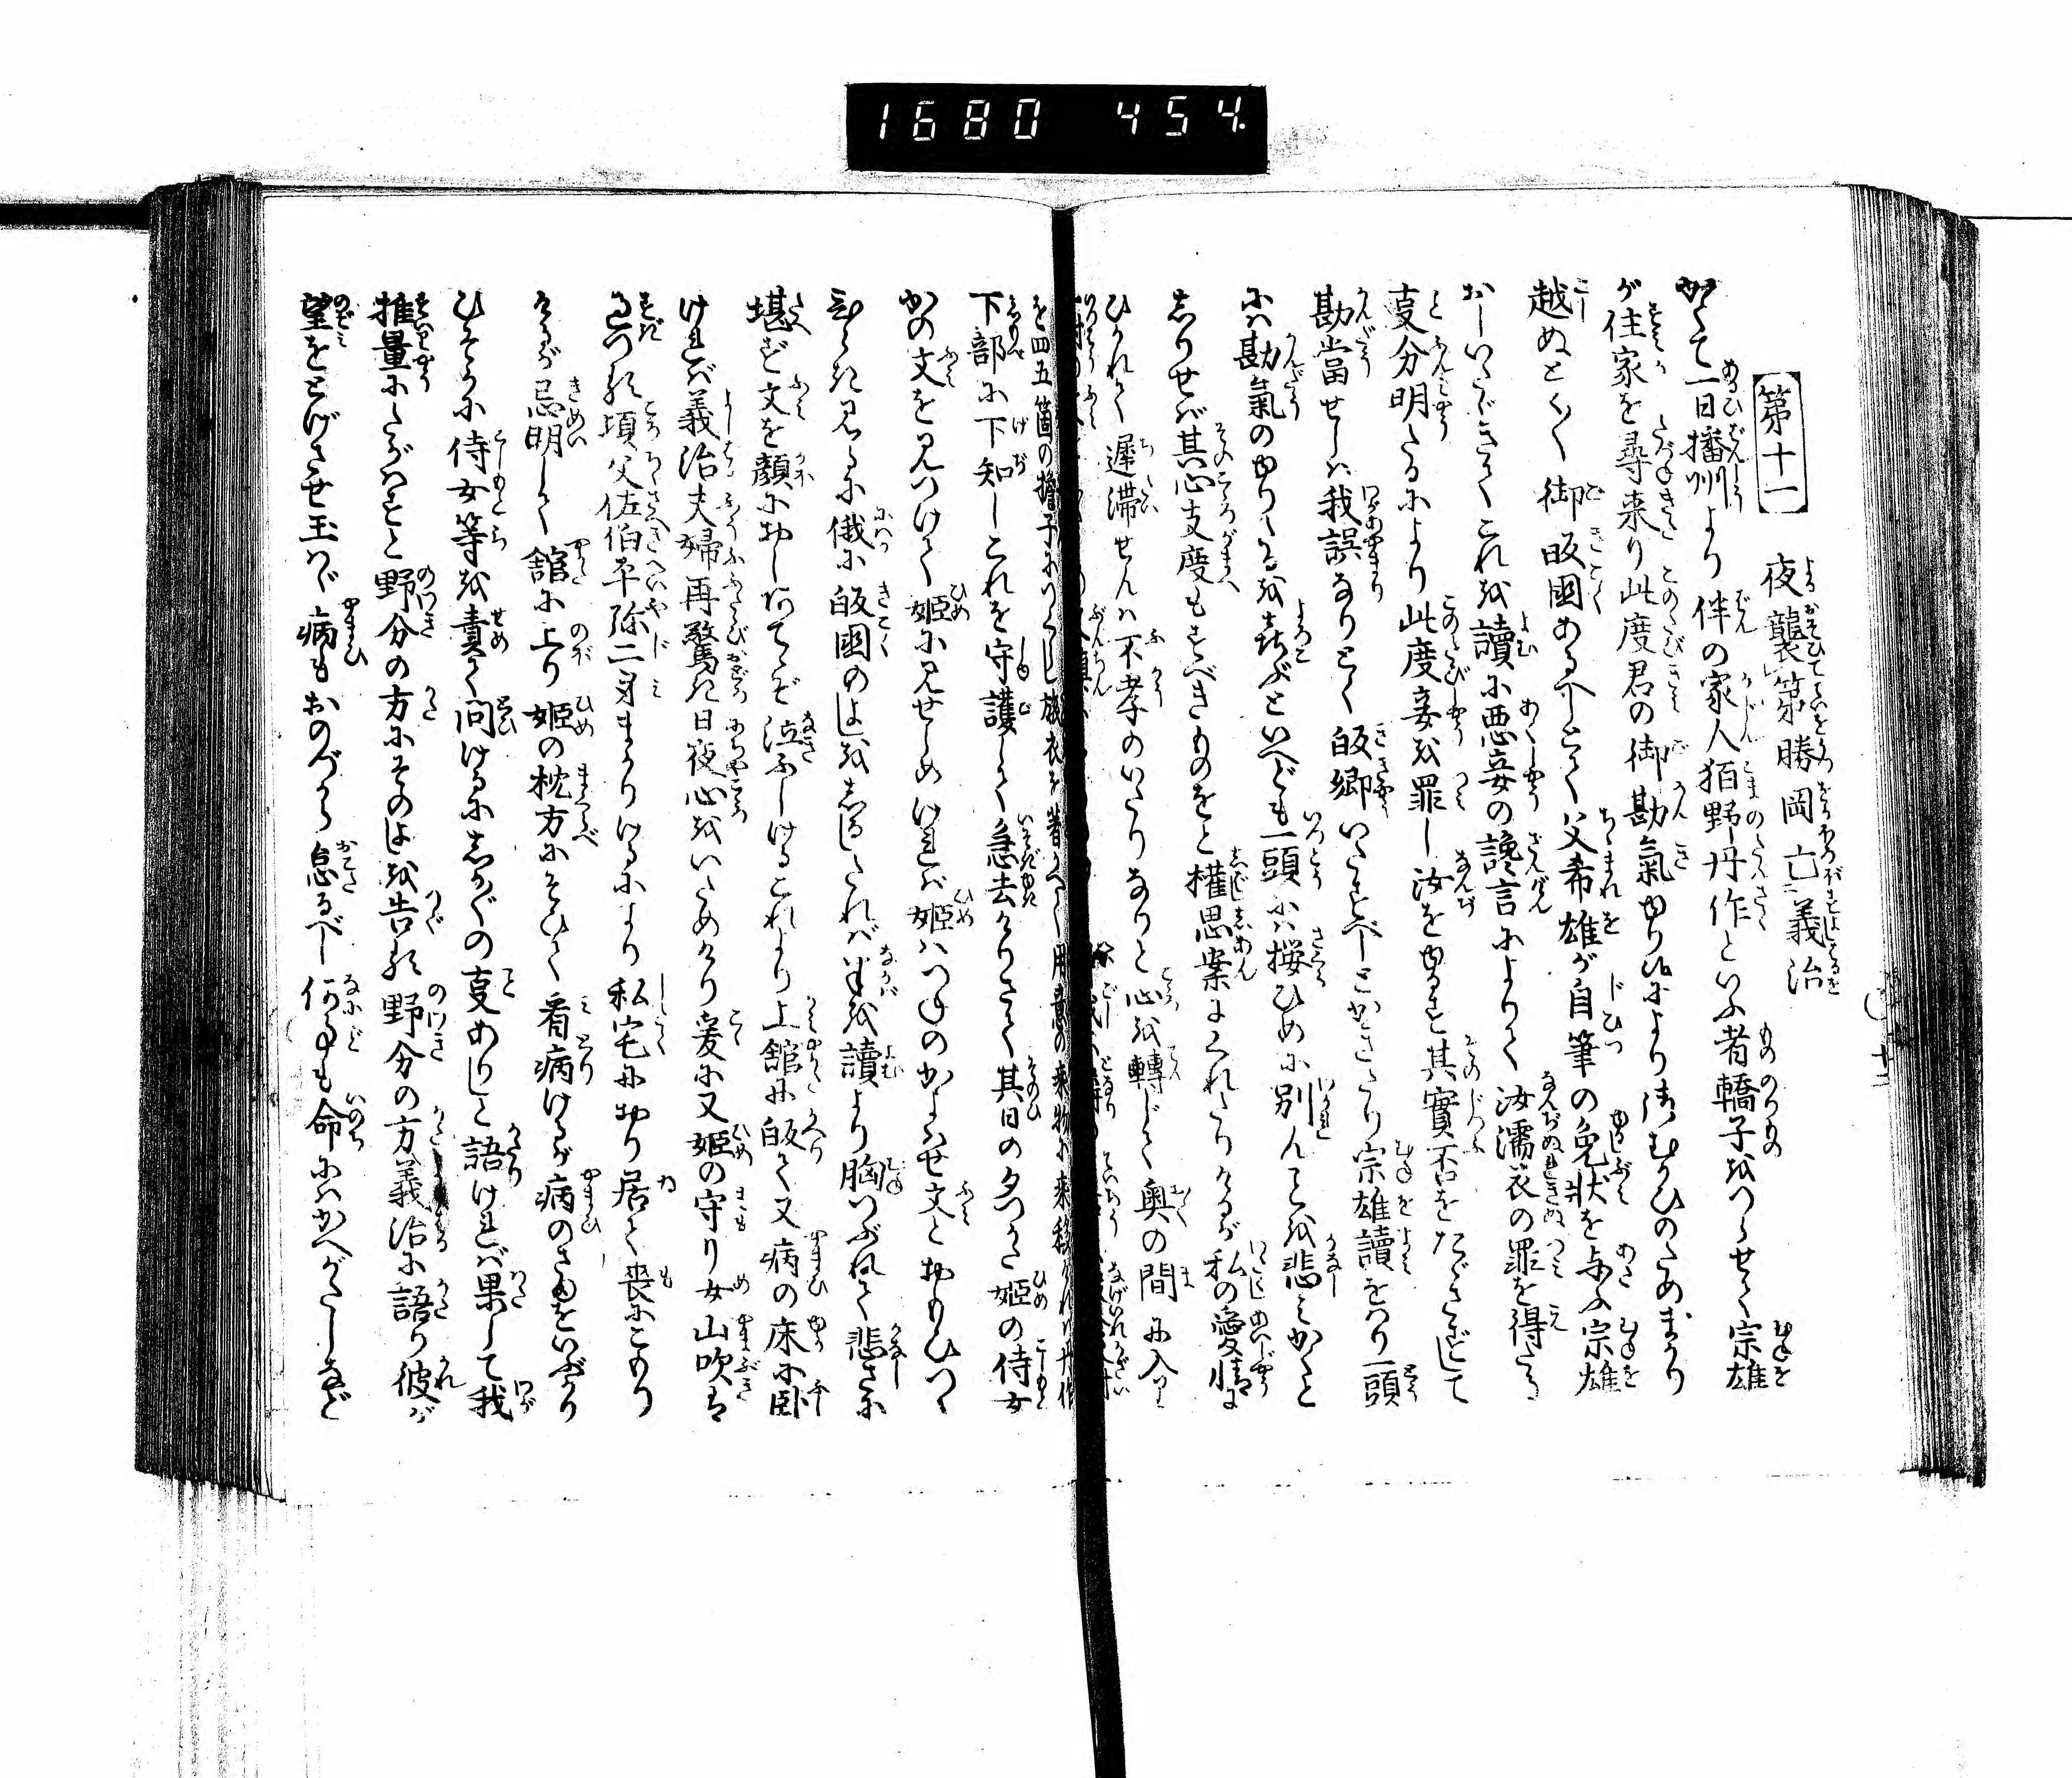 1680 454.
第十一
夜襲第勝岡亡義治
かくて一日播州より伴の家人狛野丹作といふ者轎子をつらせて宗雄
が住家を尋来り此度君の御勘氣ゆり給ふにより御むかひのためまかり
越ぬとく〱御皈國あるべしとて父希雄が自筆の免状を与ふ宗雄
おしいたゞきてこれを讀に悪妾の讒言によりて汝濡衣の罪を得たる
支分明たるにより此度妾を罪し汝をゆるす其實否をたゞさずして
勘當せしは我誤なりとく皈郷いたすべしとかきたり宗雄讀をはり一頭
には勘氣のゆりたるを喜ぶといへども一頭には桜ひめに別んことを悲みかくと
しりせば其心支度もすべきものをと權思案にくれたりけるが私の愛情に
ひかれて遅滞せんは不孝のいたりなりと心を轉じて奥の間に入り
を四五箇の擔子に
下部に下知しこれを守護して急去けりさて其日の夕つかた姫の侍女
かの文を見つけて姫に見せしめければ姫はつねのかよはせ文とおもひつゝ
ひらき見るに俄に皈國のよしをしるしたればなかばを讀より胸つぶれて悲さに
堪ず文を顔におしあてゝぞ泣ふしけるこれより上館に皈て又病の床に臥
ければ義治夫婦再驚き日夜心をいためけり爰に又姫の守り女山吹は
過つる頃父佐伯平弥二身まかりけるにより私宅におり居て喪にこもり
けるが忌明して舘に上り姫の枕方にそひて看病けるが病のさまをいぶかり
ひそかに侍女等を責て問けるにしか〲の支ありしと語ければ果して我
推量にたがはずと野分の方にそのよしを告る野分の方義治に語り彼が
望をとげさせ玉はゞ病もおのづから怠るべし何事も命にはかへがたしなど